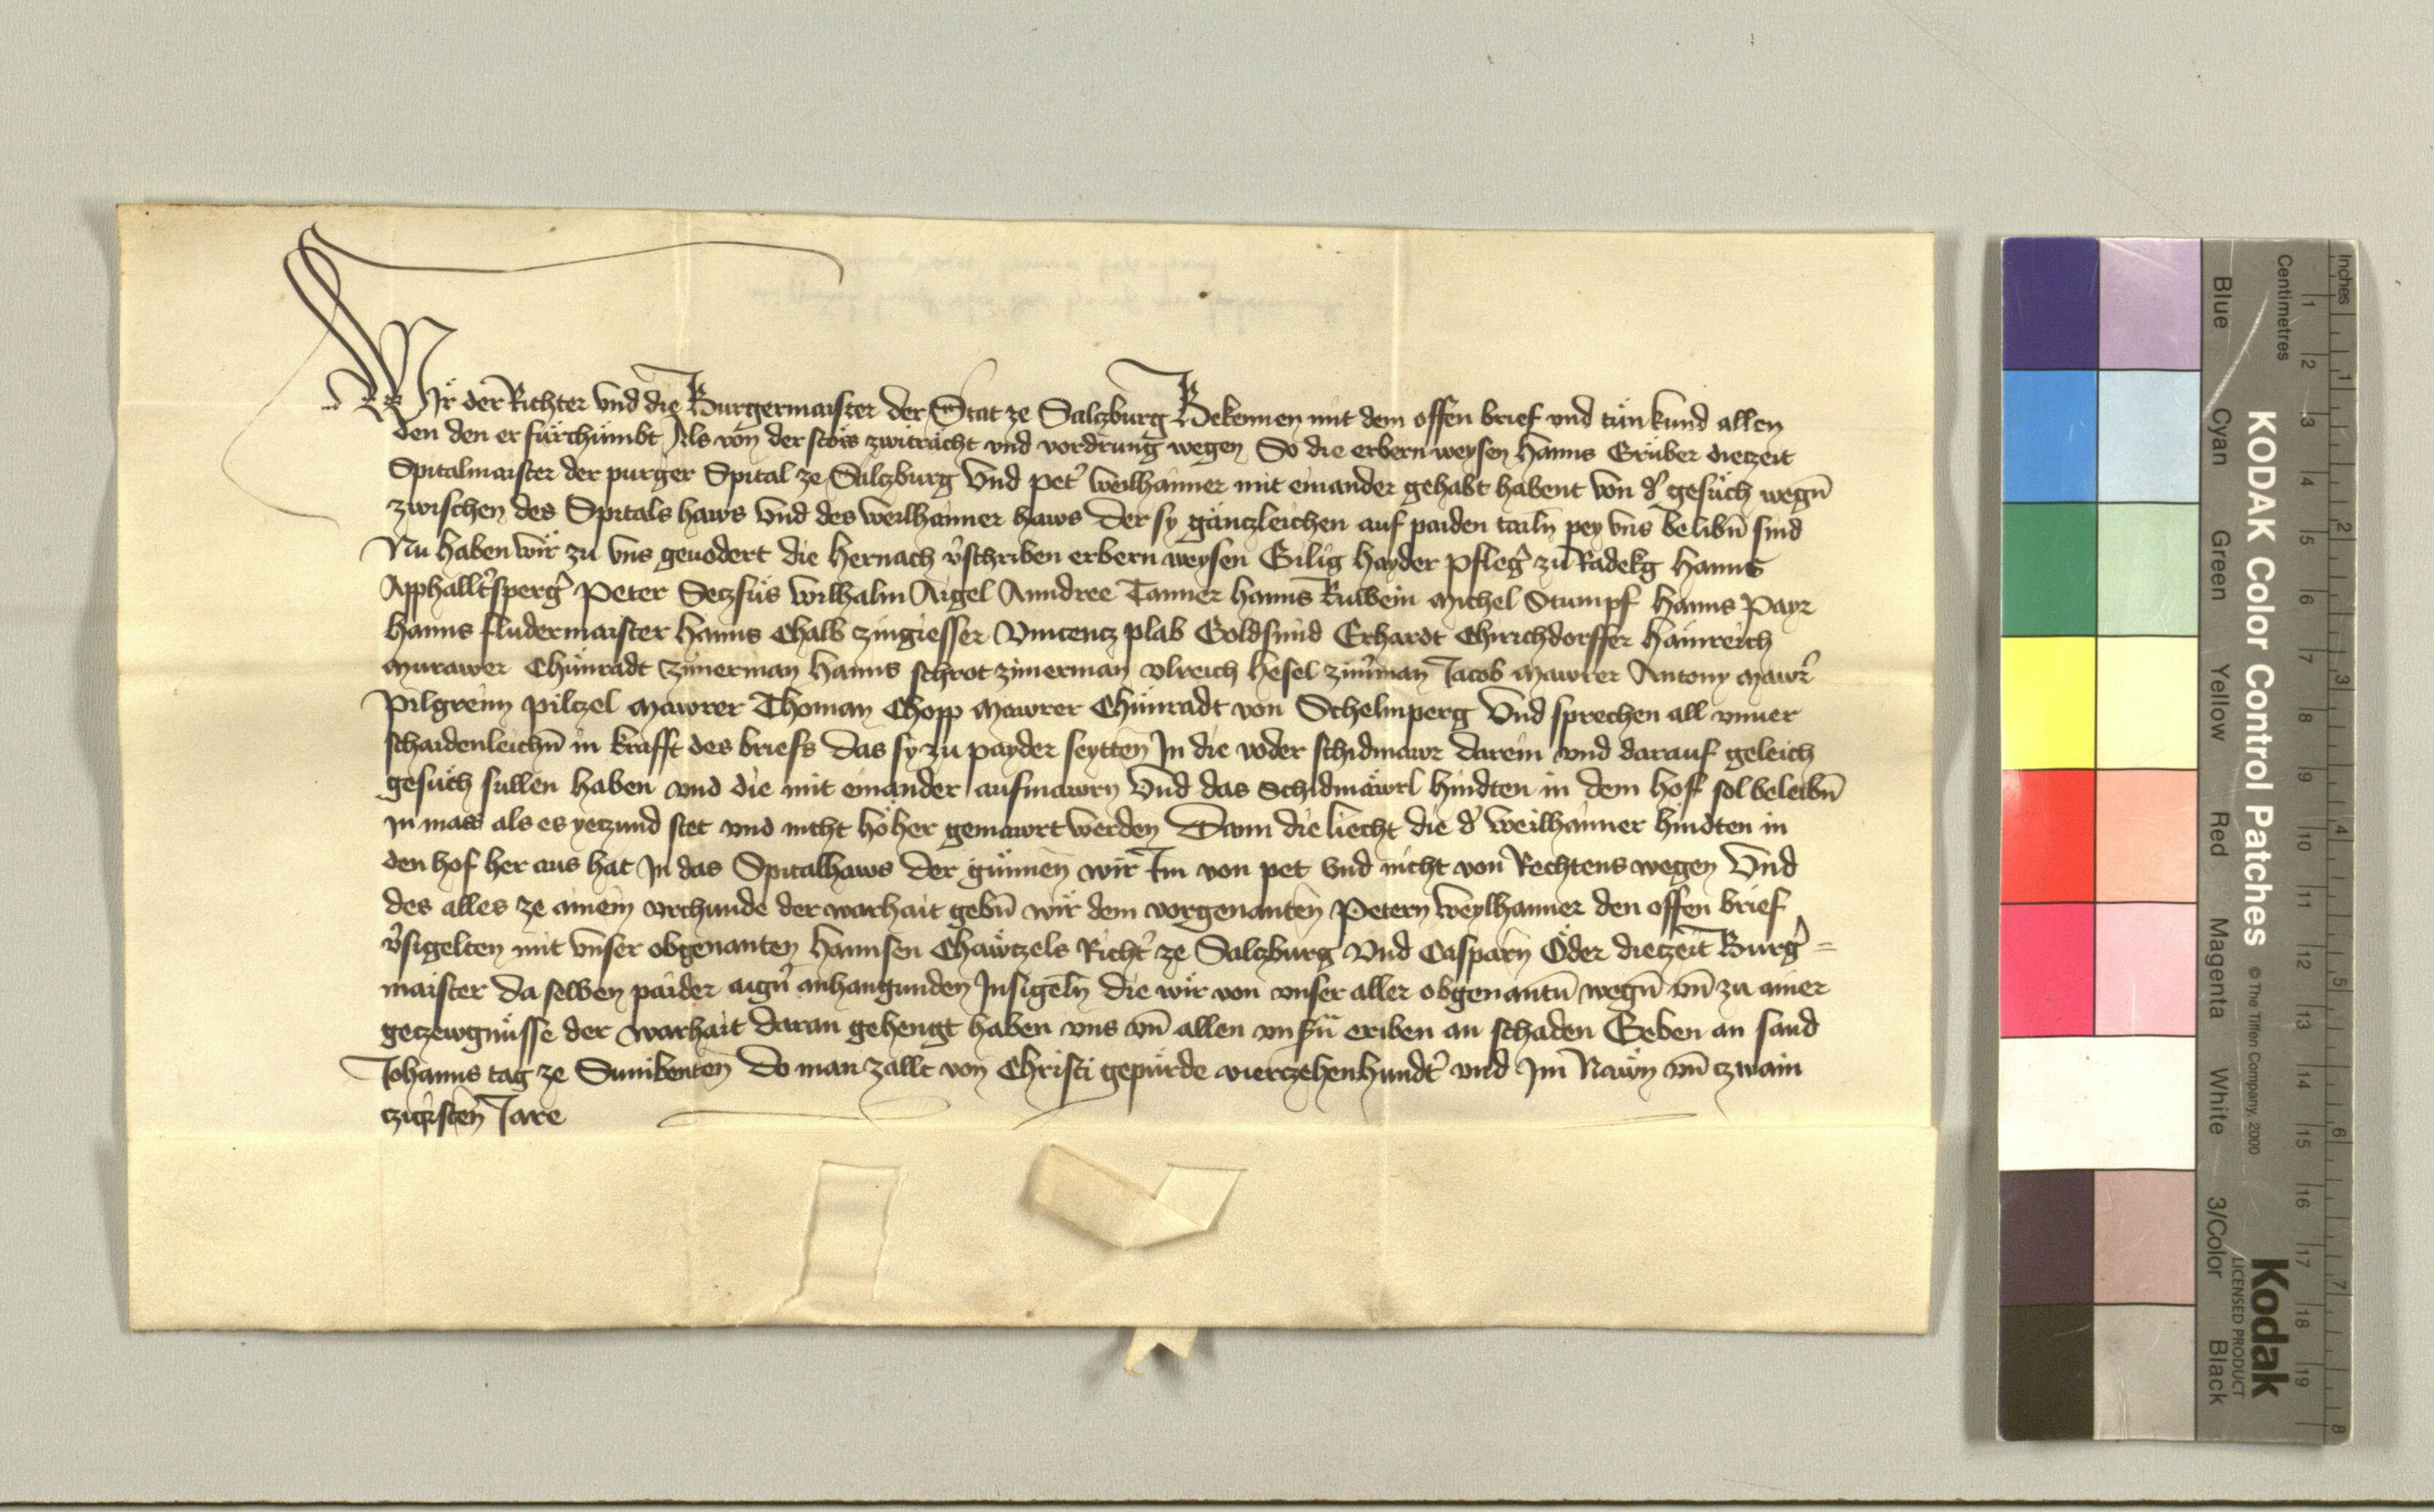 Wir der Richter vnd die Burgermaister der Stat ze Salczburg Bekennen mit dem offen brief vnd tun kund allen
den den er fürchümbt Als von der stoͤss zwitracht vnd vordrung wegen So die erbern weysen Hanns Gruber dietzeit
Spitalmaister der purger Spital ze Salczburg Vnd pet' Weilhaimer mit einander gehabt habent von d' gesuͤch wegn̄
zwischen des Spitals haws Vnd des Weilhaimer haws Der sy gänczleichen auf paiden tailn̄ pey vns belibn̄ sind
Nu haben wir zu vns geuodert die hernach v'schriben erbern weysen Gilig Hayder Pfleg' zu Radekg Hanns
Apphallt'sperg' Peter Seczsüs Wilhalm Aigel Anndree Tanner Hanns Rulbein Michel Stumpf Hanns Payr
Hanns fludermaister Hanns Chalb czingiesser Vincencz plab Goldsmid Erhardt Chirichdorffer Hainreich
Murawer Chünradt Czimerman Hanns schrot zimerman Vlreich Hesel zim̄man Jacob Mawrer Antony Mawr'
Pilgreim pilczel Mawrer Thoman Chopp Mawrer Chünradt von Schelmperg Vnd sprechen all vnuer
schaidenleichn̄ in krafft des briefs Das sy zu payder seytten In die voder schidmawr darein vnd darauf geleich
gesuͤch sullen haben vnd die mit einander aufmawrn Vnd das Schidmäwrl hindten in dem hof sol beleibn̄
In mass als es yeczund stet vnd nicht höher gemawrt werden Dann die liecht die d' Weilhaimer hindten in
den hof her aus hat In das Spitalhaws der günnen wir Im von pet vnd nicht von Rechtens wegen Vnd
des alles ze ainem vrchunde der warhait gebn̄ wir dem vorgenanten Petern Weylhaimer den offen brief
v'sigelten mit vnser obgenanten Hannsen Chäwczels Richt' ze Salczburg Vnd Casparn Öder dietzeit Burg' =
maister da selben paider aign̄ anhangunden Insigeln̄ die wir von vnser aller obgenantn̄ wegn̄ vn̄ zu ainer
geczewgnüsse der warhait daran gehengt haben vns vn̄ allen vnsn̄ eriben an schaden Geben an sand
Johanns tag ze Sunibenten Do man zallt von Christi gepürde vierczehenhundt' vnd Im Nawn vn̄ czwain
czigisten Jare
Inches
1
2
3
4
5
6
7
8
Centimetres
1
2
3
4
5
6
7
8
9
10
11
12
13
14
15
16
17
18
19
KODAK Color Control Patches © The Tiffen Company, 2000
Kodak
LICENSED PRODUCT
Blue
Cyan
Green
Yellow
Red
Magenta
White
3/Color
Black